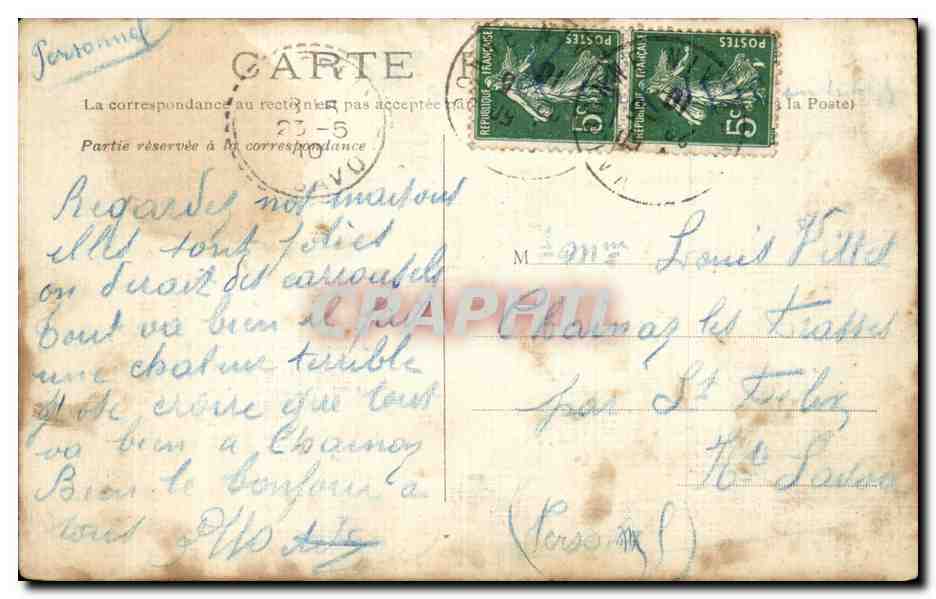 Personnel
CARTE
La correspondance au recto n'est pas acceptée pa
à la Poste)
Partie réservée à la correspondance
23-5
10
REPUBLIQUE FRANÇAISE
POSTES
5c
REPUBLIQUE FRANÇAISE
POSTES
5c
Regardez nos maisons
elles sont jolies
on dirait des carrousels
tout va bien il fait
une chaleur terrible
j ose croire que tout
va bien a Chainaz
Bien le bonjour a
tous
M Mme Louis Villet
Chainaz les Frasses
par St Felix
Hte Savoie
(Personnel)
CPAPHIL